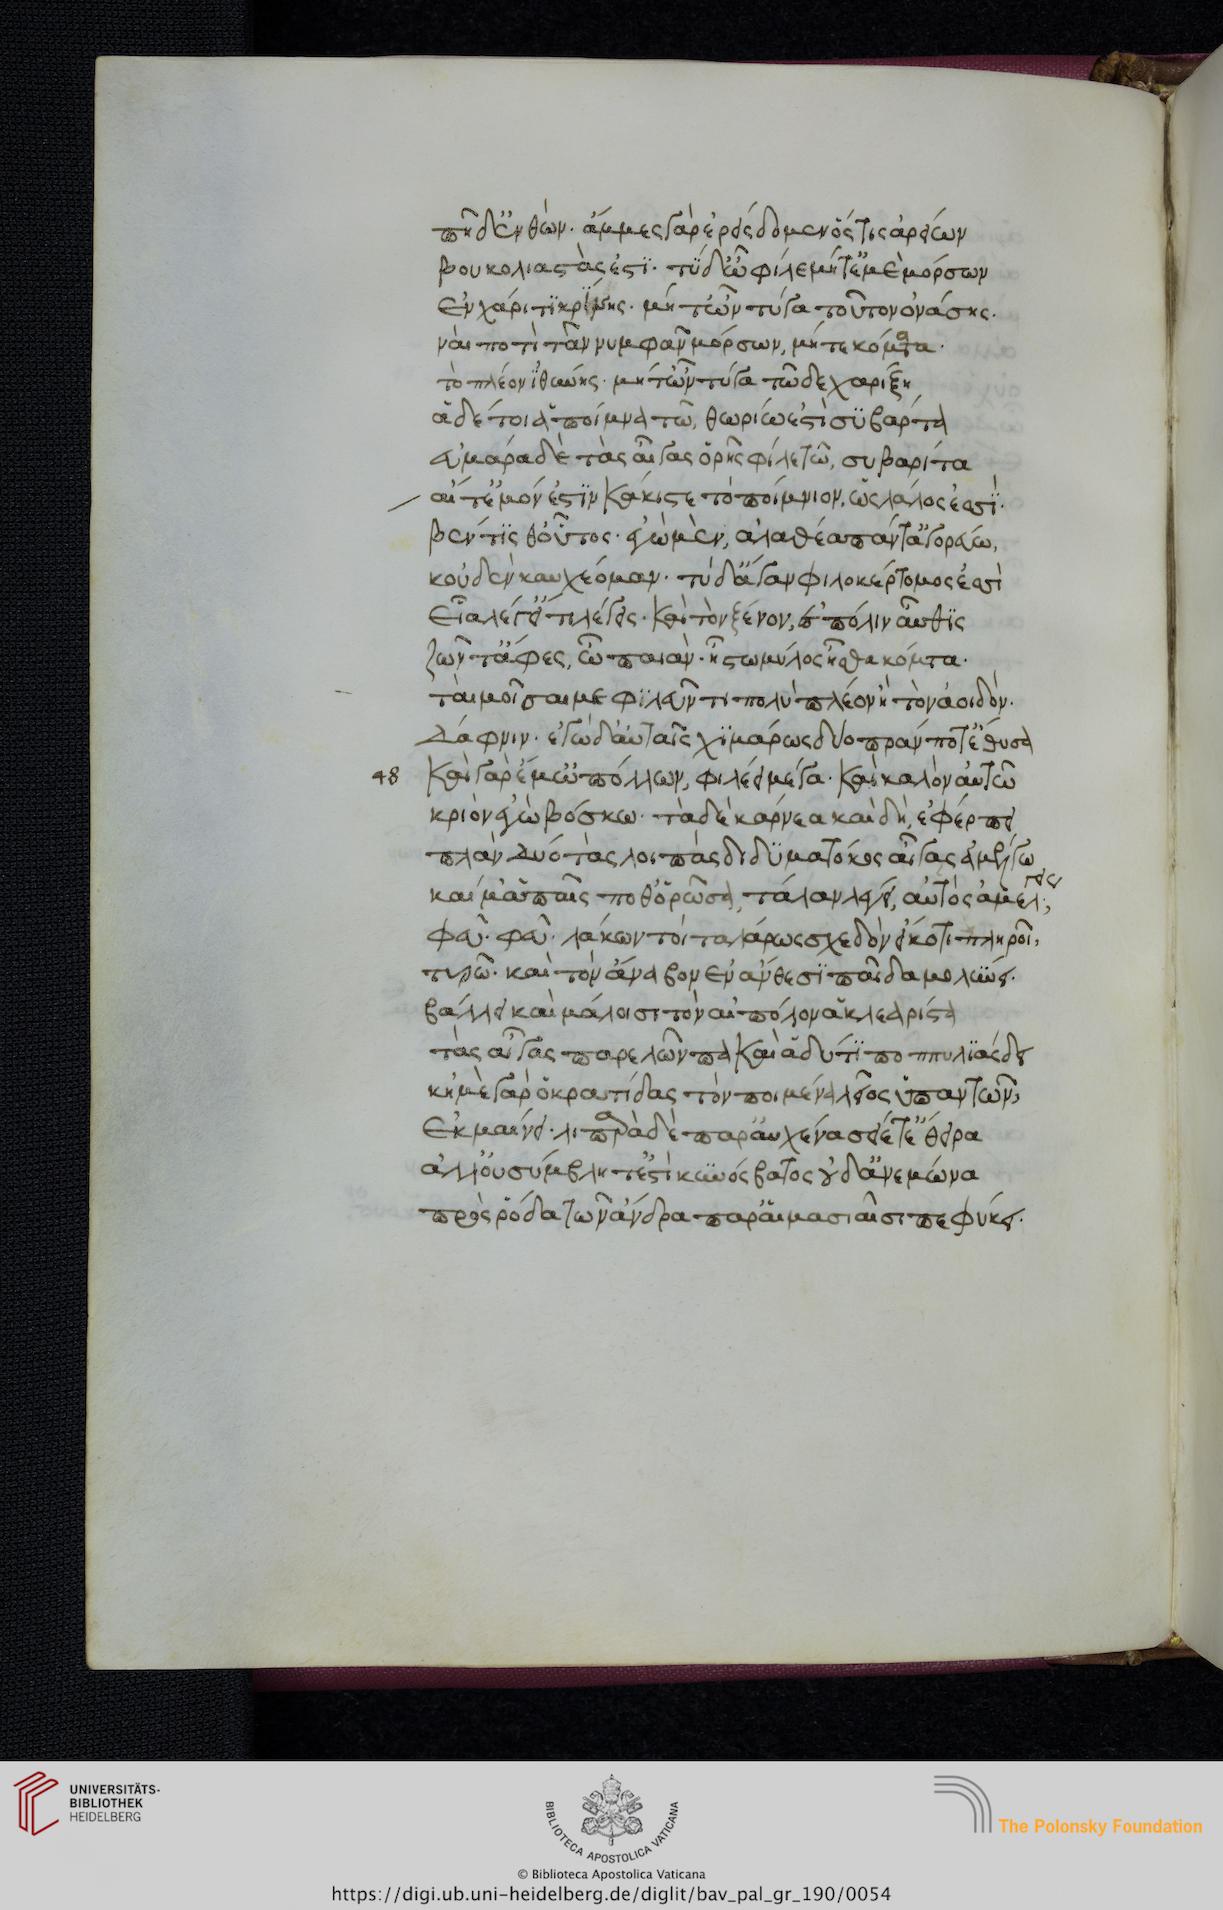 πῆδ᾽ ἐνθών. ἄμμες γὰρ ἐρείσδομεν ὅστις ἀρείων
βουκολιαστὰς ἐστϊ. τὺ δ᾽ ὦ φίλε μήτ᾽ ἐμὲ μόρσων
ἐν χάριτϊ κρίνης. μήτ᾽ ὦν τύγα τοῦτον ὀνάσης.
ναι ποτὶ τᾶν νυμφᾶν μόρσων, μήτε κομάτα.
τὸ πλέον ἰθύνης. μήτ᾽ ὦν τύγα τῶδε χαρίξη
ἅδέ τοι ἁ ποίμνα τῶ, θωρίω ἐστὶ συβαρίτα
εὐμάρα δὲ τὰς αἶγας ὁρῆς φίλε τῶ, συβαρίτα
αἴτ᾽ ἐμόν ἐστϊν κάκιστε τὸ ποίμνιον, ὡς λάλος ἐσσϊ.
βέντϊς θ᾽ οὗτος. ἐγὼ μὲν, ἀλαθέα πάντ᾽ ἀγορεύω,
κοὐδὲν καυχεόμαν. τὺ δ᾽ ἄγαν φιλοκέρτομος ἐσσὶ
Εἶα λέγ᾽ εἴ τι λέγεις. καὶ τὸν ξένον, ἐς πόλιν αὖθϊς
ζῶντ᾽ ἄφες, ὦ παιάν. ἦ στωμύλος ἦσθα κόμτα.
ταὶ μοῖσαι με φϊλεῦντι πολὺ πλέον ἢ τὸν ἀοιδὸν.
Δάφνιν. ἐγὼ δ᾽ αὐταῖς χϊμάρως δύο πράν ποτ᾽ ἔθυσα
48 καὶ γὰρ ἔμ᾽ ὡπόλλων, φιλέει μέγα. καὶ καλὸν αὐτῶ
κριὸν ἐγὼ βόσκω. τὰ δὲ κάρνεα καὶ δὴ, ἐφέρπει
πλὰν δύο τὰς λοιπὰς διδϋματόκος αἶγας ἀμέλγω
καί μ᾽ ἁ παῖς ποθόρωσα, τάλαν λέγει, αὐτὸς ἀμέλγεις;
φεῦ. φεῦ. λάκων τοί ταλάρως σχεδὸν εἴκοτι πληροῖ,
τυρῶ. καὶ τὸν ἄναβον ἐν ἄνθεσϊ παῖδα μολύνει.
βάλλει καὶ μάλοισι τὸν αἰπόλον ἁ κλεαρίστα
τὰς αἶγας παρελῶντα καὶ ἁδύ τϊ ποππυλϊάσδει
κἠμὲ γὰρ ὁ κρατίδας τὸν ποιμένα λεῖος ὑπαντῶν,
Ἐκμαίνει. λιπαρὰ δὲ παρ᾽ αὐχένα σείετ᾽ ἔθειρα
ἀλλ᾽ οὐ σύμβλητ᾽ ἐστὶ κυνόσβατος οὐδ᾽ ἀνεμώνα
πρὸς ῥόδα τῶν ἄνδρα παρ᾽ αἱμασιαῖσι πεφύκει.
UNIVERSITÄTS-
BIBLIOTHEK
HEIDELBERG
BIBLIOTECA APOSTOLICA VATICANA
The Polonsky Foundation
© Biblioteca Apostolica Vaticana
https://digi.ub.uni-heidelberg.de/diglit/bav_pal_gr_190/0054